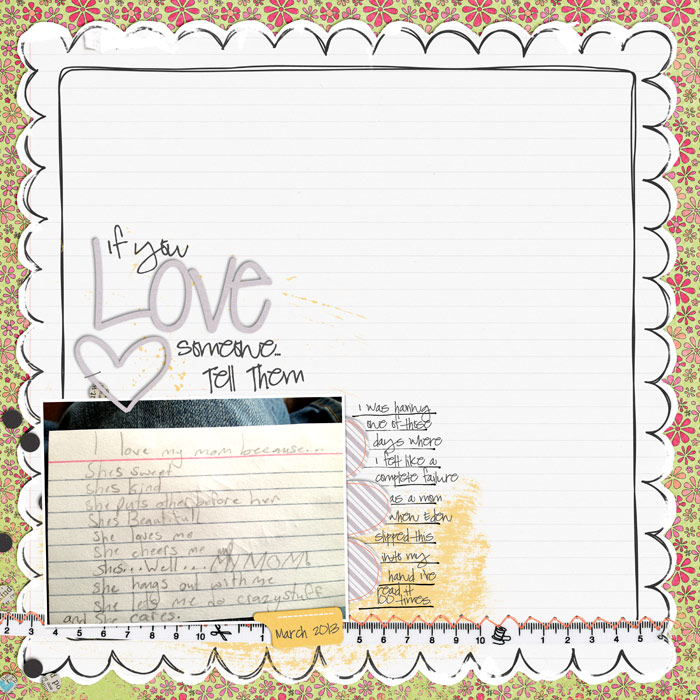 if you
LOVE
someone..
Tell Them
I love my mom because...
Shes sweet
shes kind
she puts other before her
Shes Beautifull
she loves me
she cheers me
shes...Well....MY MOM!
she hangs out with me
she lets me do crazystuff
and she cares.
I was having
one of those
days where
I felt like a
complete failure
as a mom
when Eden
slipped this
into my
hand I've
read it
100 times
March 2013
2 3 4 5 6 7 8 9 10 1 2 3 4 5 6 7 8 9 10 1 2 3 4 5